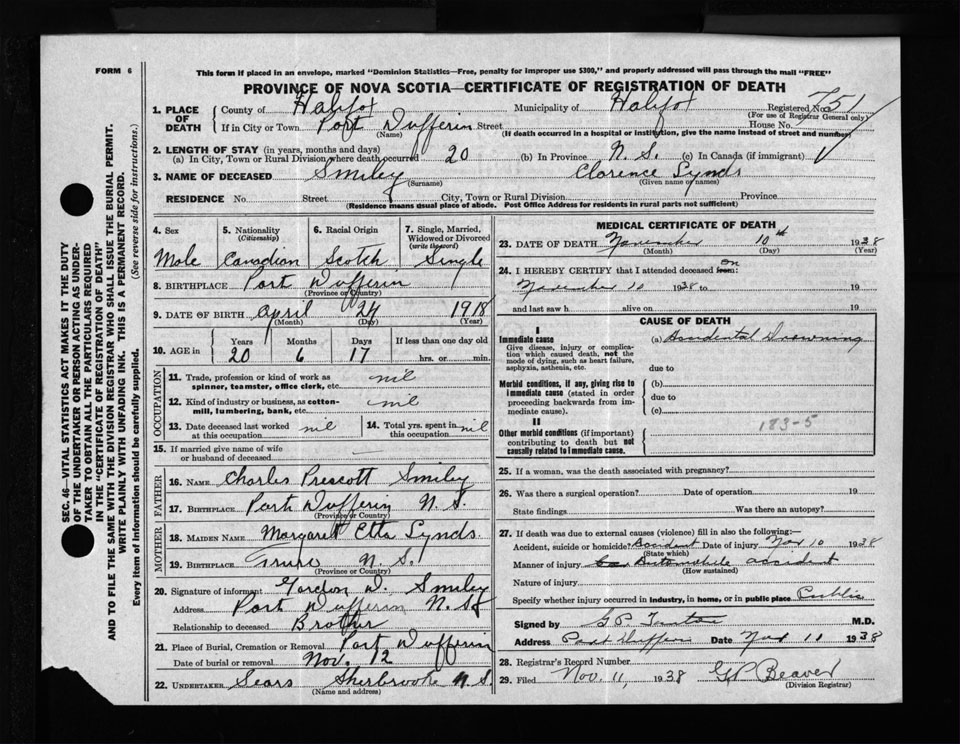 FORM 6
This form if placed in an envelope, marked "Dominion Statistics—Free, penalty for improper use $300," and properly addressed will pass through the mail "FREE"
PROVINCE OF NOVA SCOTIA—CERTIFICATE OF REGISTRATION OF DEATH
1. PLACE OF DEATH
County of Halifax Municipality of Halifax Registered No. 751
(For use of Registrar General only)
If in City or Town Port Dufferin Street House No.
(Name) (If death occurred in a hospital or institution, give the name instead of street and number)
2. LENGTH OF STAY (in years, months and days)
(a) In City, Town or Rural Division where death occurred 20 (b) In Province N. S. (c) In Canada (if immigrant)
3. NAME OF DECEASED Smiley Clarence Lynds
(Surname) (Given name or names)
RESIDENCE No. Street City, Town or Rural Division Province
(Residence means usual place of abode. Post Office Address for residents in rural parts not sufficient)
4. Sex 5. Nationality (Citizenship) 6. Racial Origin 7. Single, Married, Widowed or Divorced (write the word)
Male Canadian Scotch Single
8. BIRTHPLACE Port Dufferin
(Province or Country)
9. DATE OF BIRTH April 24 1918
(Month) (Day) (Year)
10. AGE in Years Months Days If less than one day old
20 6 17 hrs. or min.
OCCUPATION
11. Trade, profession or kind of work as spinner, teamster, office clerk, etc. nil
12. Kind of industry or business, as cotton-mill, lumbering, bank, etc. nil
13. Date deceased last worked at this occupation nil 14. Total yrs. spent in this occupation nil
15. If married give name of wife or husband of deceased —
FATHER
16. NAME Charles Prescott Smiley
17. BIRTHPLACE Port Dufferin N. S.
(Province or Country)
MOTHER
18. MAIDEN NAME Margaret Etta Lynds.
19. BIRTHPLACE Truro N. S.
(Province or Country)
20. Signature of informant Gordon D. Smiley
Address Port Dufferin N. S.
Relationship to deceased Brother
21. Place of Burial, Cremation or Removal Port Dufferin
Date of burial or removal Nov. 12
22. UNDERTAKER Sears Sherbrooke N S.
(Name and address)
MEDICAL CERTIFICATE OF DEATH
23. DATE OF DEATH November 10th 1938
(Month) (Day) (Year)
24. I HEREBY CERTIFY that I attended deceased from: on
November 10 1938 to 19
and last saw h alive on 19
CAUSE OF DEATH
I
Immediate cause (a) Accidental Drowning
Give disease, injury or complication which caused death, not the mode of dying, such as heart failure, asphyxia, asthenia, etc.
due to
Morbid conditions, if any, giving rise to immediate cause (stated in order proceeding backwards from immediate cause).
(b)
due to
(c)
II
183-5
Other morbid conditions (if important) contributing to death but not causally related to immediate cause.
25. If a woman, was the death associated with pregnancy?
26. Was there a surgical operation? Date of operation 19
State findings Was there an autopsy?
27. If death was due to external causes (violence) fill in also the following:—
Accident, suicide or homicide? Accident Date of injury Nov 10 1938
(State which)
Manner of injury Automobile accident
(How sustained)
Nature of injury
Specify whether injury occurred in industry, in home, or in public place Public
Signed by M.D.
Address Port Dufferin Date Nov 11 1938
28. Registrar's Record Number
29. Filed Nov. 11, 1938 Beaver
(Division Registrar)
SEC. 46—VITAL STATISTICS ACT MAKES IT THE DUTY
OF THE UNDERTAKER OR PERSON ACTING AS UNDER-
TAKER TO OBTAIN ALL THE PARTICULARS REQUIRED
IN THE "CERTIFICATE OF REGISTRATION OF DEATH"
AND TO FILE THE SAME WITH THE DIVISION REGISTRAR WHO SHALL ISSUE THE BURIAL PERMIT.
WRITE PLAINLY WITH UNFADING INK. THIS IS A PERMANENT RECORD.
Every item of Information should be carefully supplied. (See reverse side for instructions.)